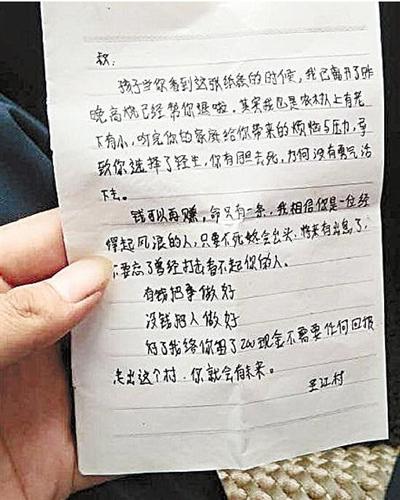 孩子当你看到这张纸条的时候,我已离开了昨
晚高烧已经帮你退啦.其实我也是农村人上有老
下有小,听完你的家庭给你带来的烦恼与压力,导
致你选择了轻生,你有胆去死,为何没有勇气活
下去.
钱可以再赚,命只有一条,我相信你是一位经
得起风浪的人,只要不死终会出头.将来有出息了,
不要忘了曾经打击看不起你的人.
有钱把事做好
没钱把人做好
对了我给你留了200现金不需要任何回报
走出这个村.你就会有未来。
王江村